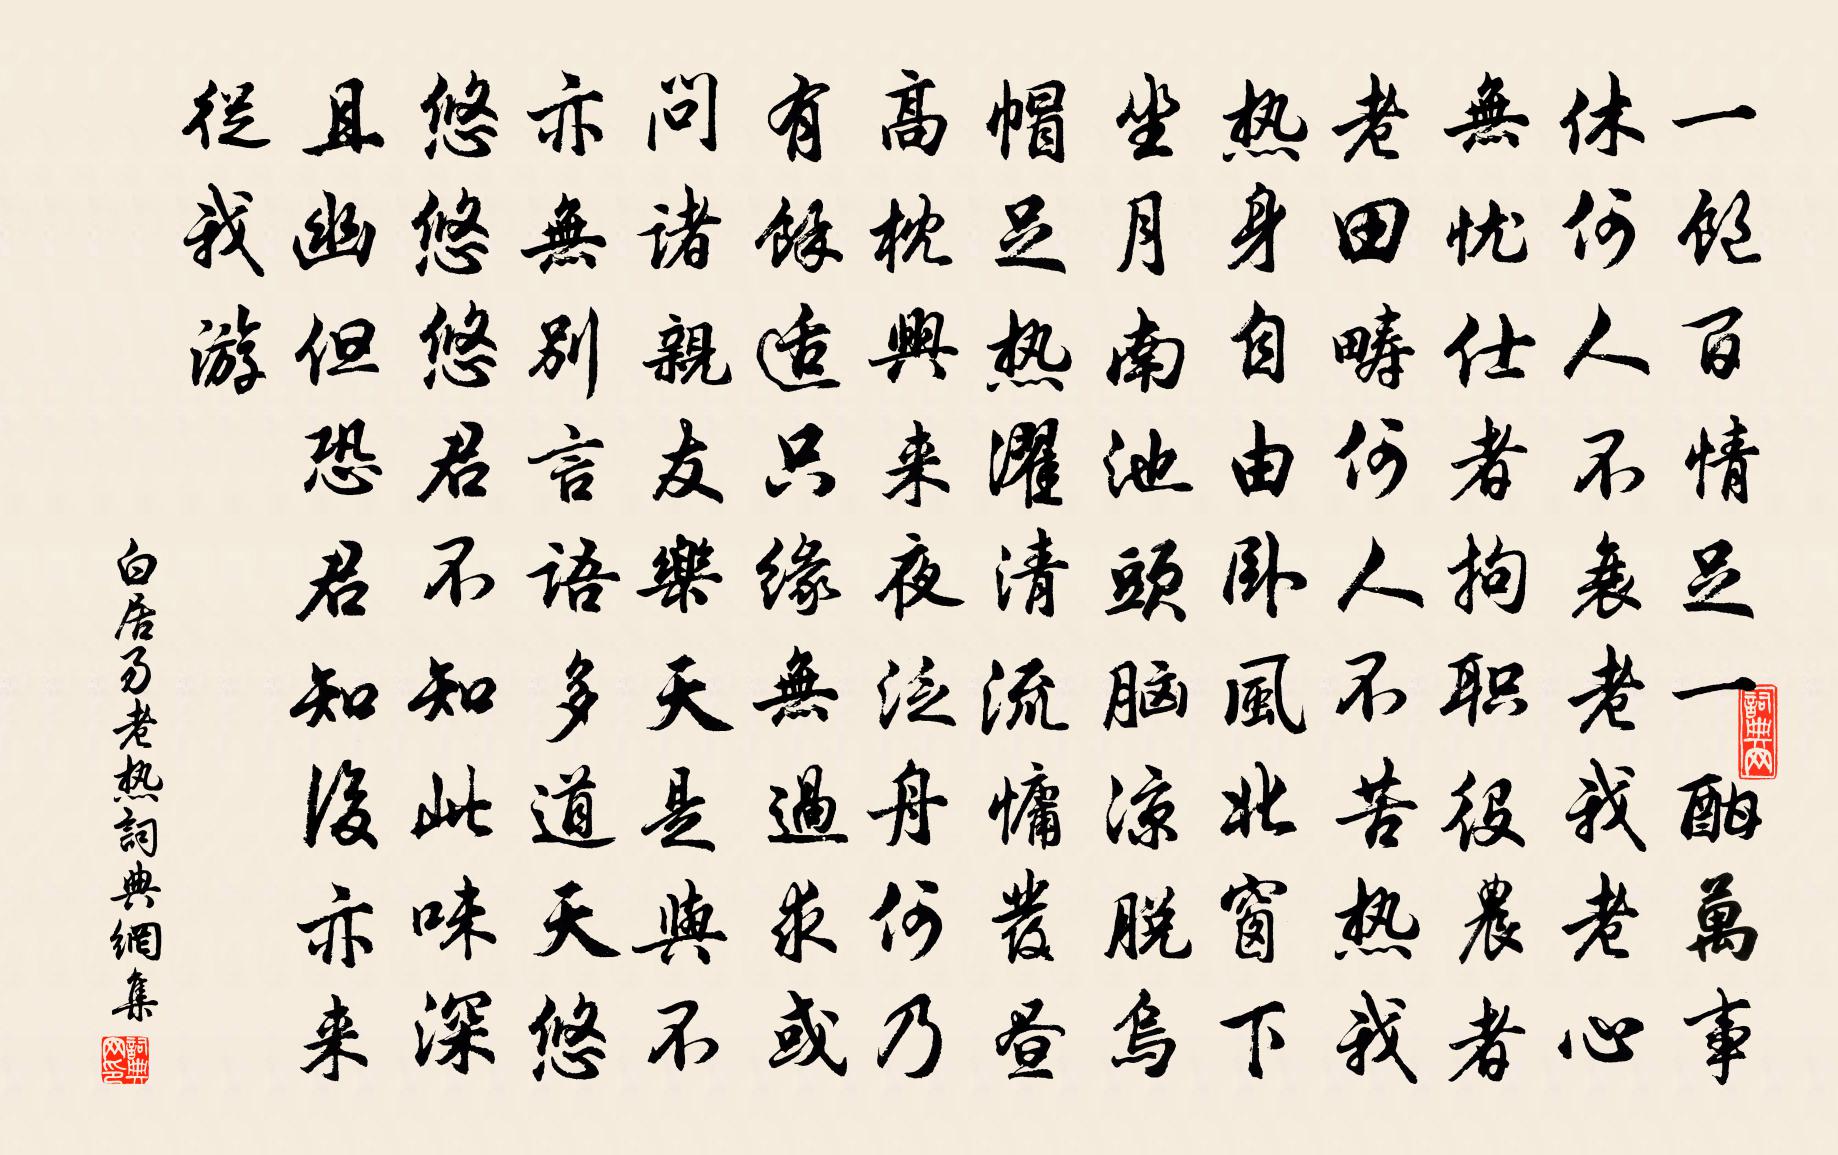 一飽百情足一酣萬事
休何人不衰老我老心
無忧仕者拘职役農者
老田畴何人不苦热我
热身自由卧風北窗下
坐月南池頭脑涼脱烏
帽足热濯清流慵發昼
高枕興来夜泛舟何乃
有餘适只缘無過求或
問诸親友樂天是與不
亦無别言语多道天悠
悠悠悠君不知此味深
且幽但恐君知後亦来
從我游
白居易老热詞典網集
詞典网
詞典网印